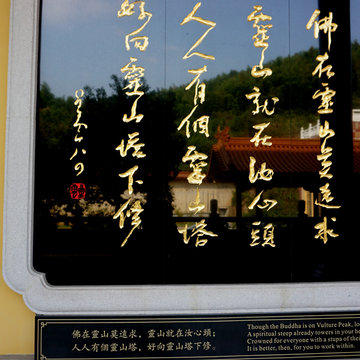 佛在靈山莫遠求
靈山就在汝心頭
人人有個靈山塔
好向靈山塔下修
佛在靈山莫遠求，靈山就在汝心頭；
人人有個靈山塔，好向靈山塔下修。
Though the Buddha is on Vulture Peak, lo
A spiritual steep already towers in your he
Crowned for everyone with a stupa of the
It is better, then, for you to work within